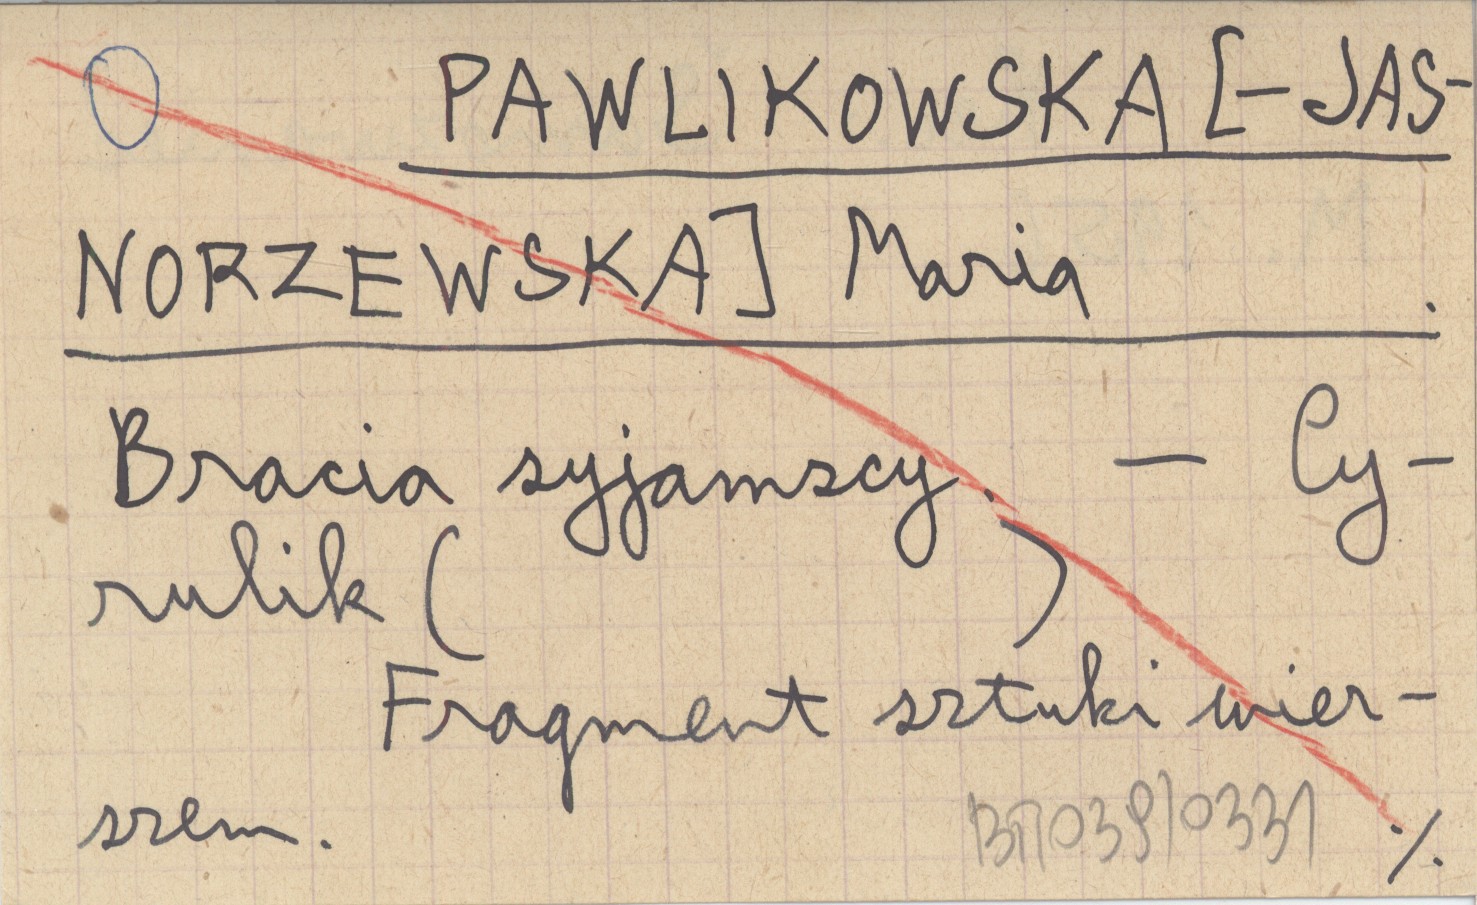 PAWLIKOWSKA [-JAS-
NORZEWSKA] Maria .
Bracia syjamscy. — Cy-
rulik ( )
Fragment sztuki wier-
szem.
./.